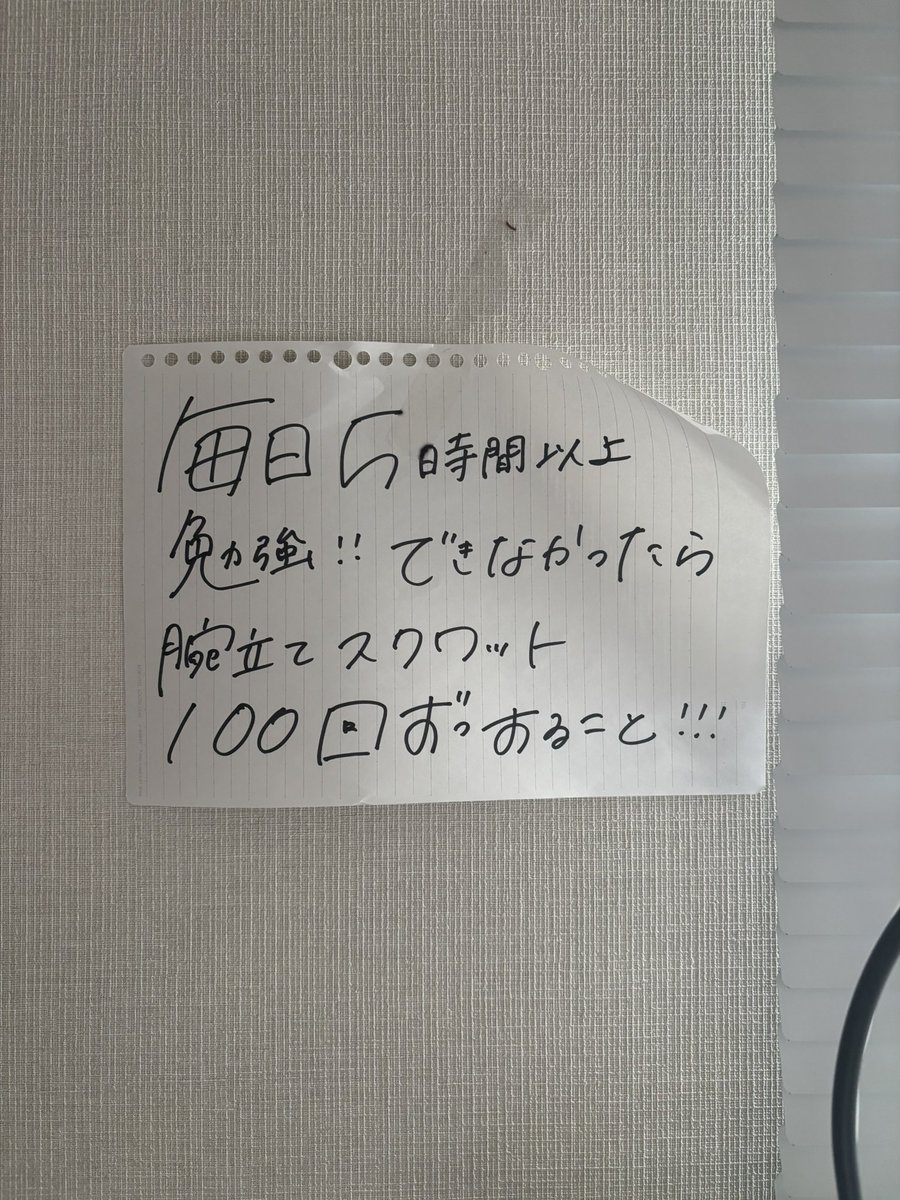 毎日5時間以上
勉強!!できなかったら
腕立てスクワット
100回ずつすること!!!